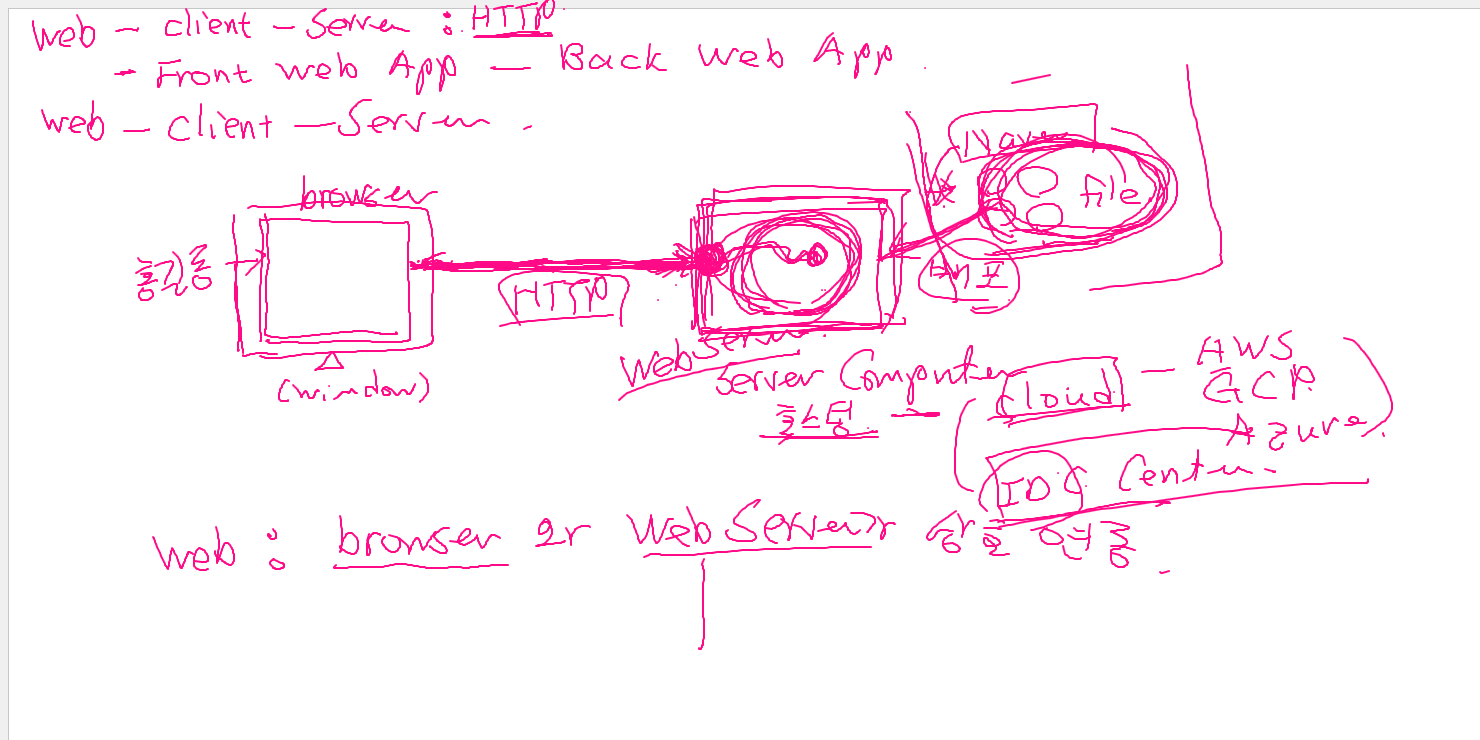 web - client - Server : HTTP.
- Front web App - Back Web App.
web - client - Server.
browser
홍길동
HTTP
file
배포
(window)
Web Server.
Server Computer
호스팅
Cloud - AWS
GCP.
Azure.
IDC Center.
web : browser 와 Web Server가 상호 연동.